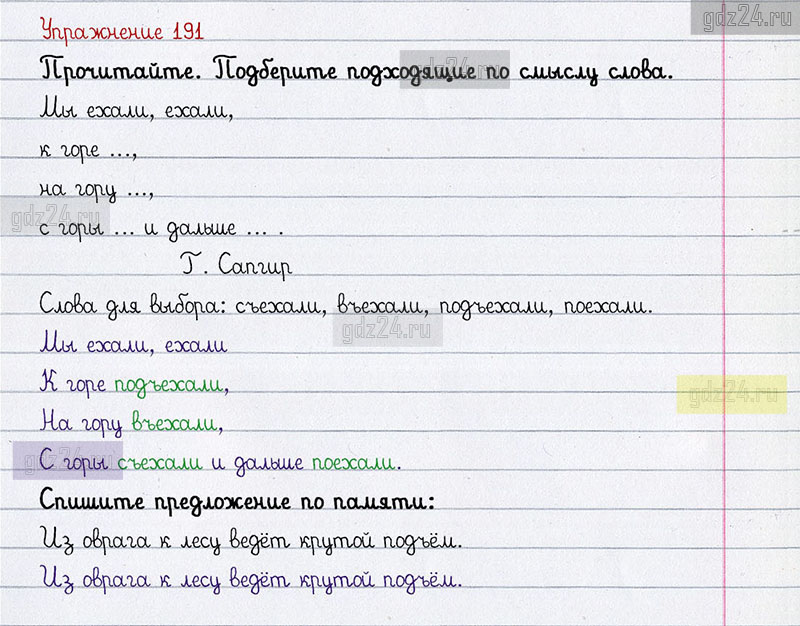 gdz24.ru
Упражнение 191
Прочитайте. Подберите подходящие по смыслу слова.
gdz24.ru
Мы ехали, ехали,
к горе ...,
на гору ...,
gdz24.ru
с горы ... и дальше ... .
Г. Сапгир
Слова для выбора: съехали, въехали, подъехали, поехали.
gdz24.ru
Мы ехали, ехали
К горе подъехали,
gdz24.ru
На гору въехали,
gdz24.ru
С горы съехали и дальше поехали.
Спишите предложение по памяти:
Из оврага к лесу ведёт крутой подъём.
Из оврага к лесу ведёт крутой подъём.